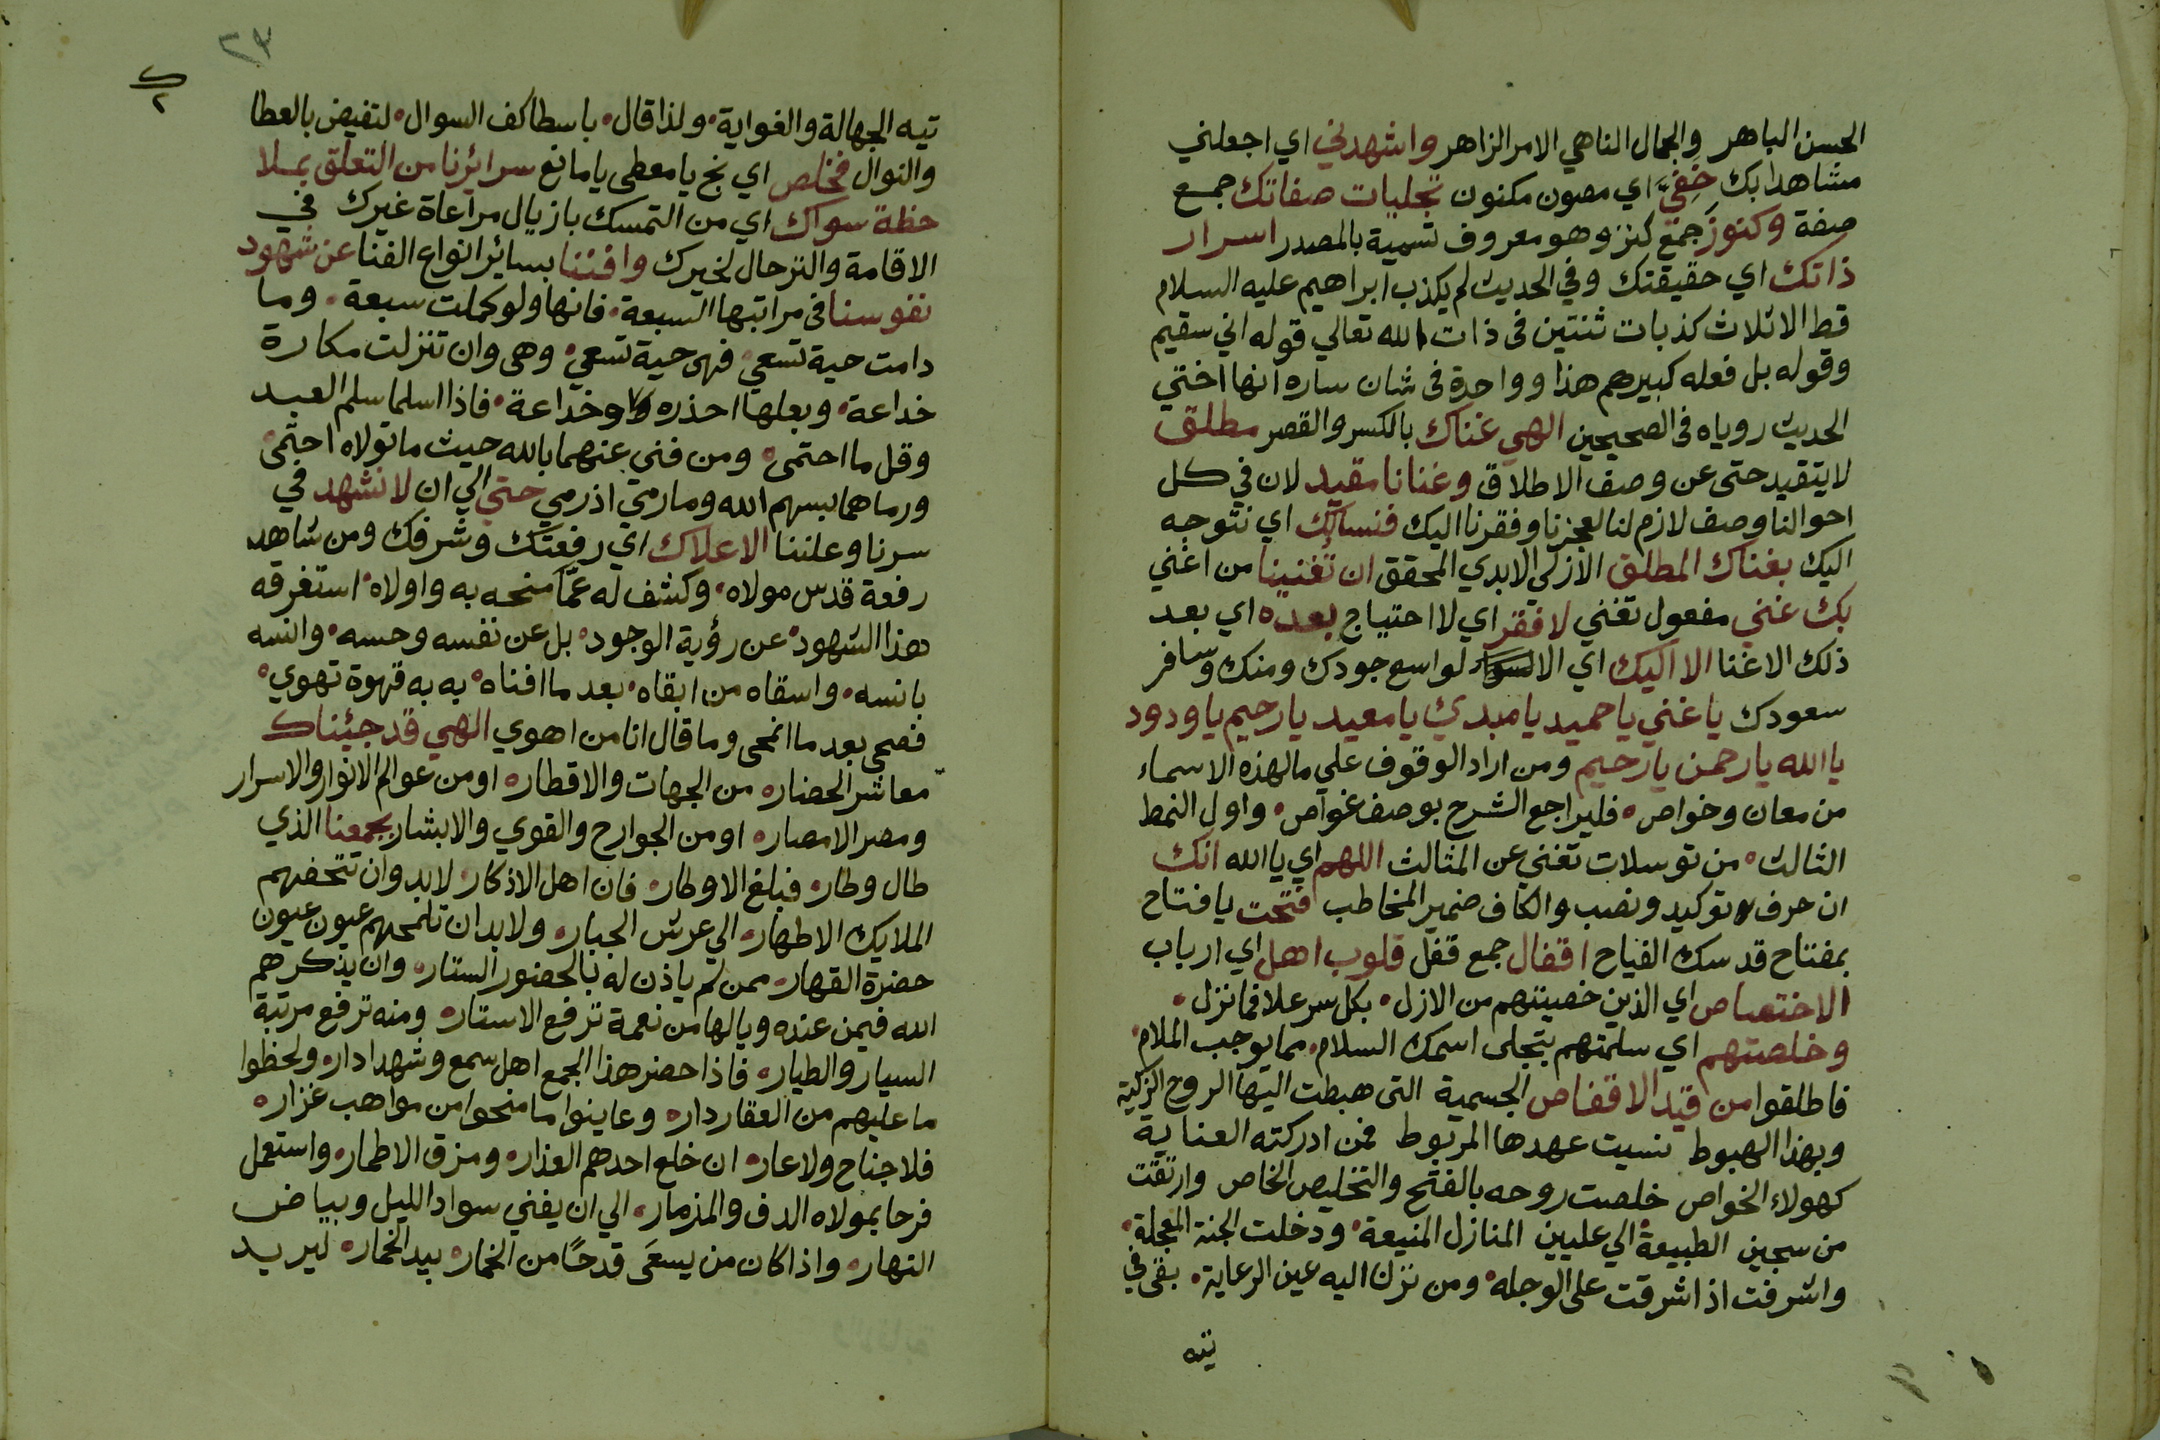 الحسن الباهر والجمال الناهي الامر الزاهر واشهدني اي اجعلني
مشاهدا بك خفيَّ اي مصون مكنون تجليات صفاتك جمع
صفة وكنوزَ جمع كنز وهو معروف تسمية بالمصدر اسرار
ذاتك اي حقيقتك وفي الحديث لم يكذب ابراهيم عليه السلام
قط الا ثلاث كذبات ثنتين فى ذات الله تعالي قوله اني سقيم
وقوله بل فعله كبيرهم هذا وواحدة فى شان ساره انها اختي
الحديث روياه فى الصحيحين الهي غناك بالكسر والقصر مطلق
لا يتقيد حتى عن وصف الاطلاق وغنانا مقيد لان في كل
احوالنا وصف لازم لنا لعجزنا وفقرنا اليك فنسالك اي نتوجه
اليك بغناك المطلق الازلي الابدي المحقق ان تغنينا من اغني
بك غني مفعول تغني لا فقر اي لا احتياج بعده اي بعد
ذلك الاغنا الا اليك اي الا لواسع جودك ومنك وسافر
سعودك يا غني يا حميد يا مبدئ يا معيد يا رحيم يا ودود
يا الله يا رحمن يا رحيم ومن اراد الوقوف علي ما لهذه الاسماء
من معان وخواص فليراجع الشرح بوصف غواص واول النمط
الثالث من توسلات تغني عن المثالث اللهم اي يا الله انك
ان حرف توكيد ونصب والكاف ضمير المخاطب فتحت يا فتاح
بمفتاح قدسك الفياح اقفال جمع قفل قلوب اهل اي ارباب
الاختصاص اي الذين خصيتهم من الازل بكل سر علا فما نزل
وخلصتهم اي سلمتهم بتجلى اسمك السلام مما يوجب الملام
فاطلقوا من قيد الاقفاص الجسمية التى هبطت اليها الروح الزكية
وبهذا الهبوط نسيت عهدها المربوط فمن ادركته العناية
كهولاء الخواص خلصت روحه بالفتح والتخليص الخاص وارتقت
من سجين الطبيعة الي عليين المنازل المنيعة ودخلت الجنة المعجلة
واشرفت اذ اشرقت على الوجله ومن نزلت اليه عين الرعاية بقى في
تيه
٢٣
ك
٢
تيه الجهالة والغواية ولذا قال باسطا كف السوال لتفيض بالعطا
والنوال فخلص اي نج يا معطى يا مانع سرائرنا من التعلق بملا
حظة سواك اي من التمسك بازيال مراعاة غيرك في
الاقامة والترحال لخيرك وافننا بسائر انواع الفنا عن شهود
نفوسنا فى مراتبها السبعة فانها ولو كملت سبعة وما
دامت حية تسعي فهى حية تسعي وهى وان تنزلت مكارة
خداعة وبعلها احذره وخداعة فاذا اسلما سلم العبد
وقل ما احتمى ومن فني عنهما بالله حيث ما تولاه احتمى
ورماهما بسهم الله وما رمي اذ رمي حتي الي ان لا نشهد في
سرنا وعلننا الا علاك اي رفعتك وشرفك ومن شاهد
رفعة قدس مولاه وكشف له عمّا منحه به واولاه استغرقه
هذا الشهود عن رؤية الوجود بل عن نفسه وحسه وانسه
بانسه واسقاه من ابقاه بعد ما افناه به به قهوة تهوي
فصحى بعد ما انمحى وما قال انا من اهوي الهي قد جئناك
معاشر الحضار من الجهات والاقطار او من عوالم الانوار والاسرار
ومصر الامصار او من الجوارح والقوي والابشار بجمعنا الذي
طال وطار فبلغ الاوطار فان اهل الاذكار لا بد وان تتحفهم
الملايك الاطهار الي عرش الجبار ولا بد ان تلمحهم عيون عيون
حضرة القهار ممن لم ياذن له بالحضور الستار وان يذكرهم
الله فيمن عنده ويالها من نعمة ترفع الاستار ومنه ترفع مرتبة
السيار والطيار فاذا حضر هذا الجمع اهل سمع وشهدا دار ولحظوا
ما عليهم من العقار دار وعاينوا ما منحوا من مواهب غزار
فلا جناح ولا عار ان خلع احدهم العذار ومزق الاطمار واستعمل
فرحا بمولاه الدف والمزمار الي ان يفني سواد الليل وبياض
النهار واذا كان من يسعَى قدحًا من الخمار بيد الخمار ليريد